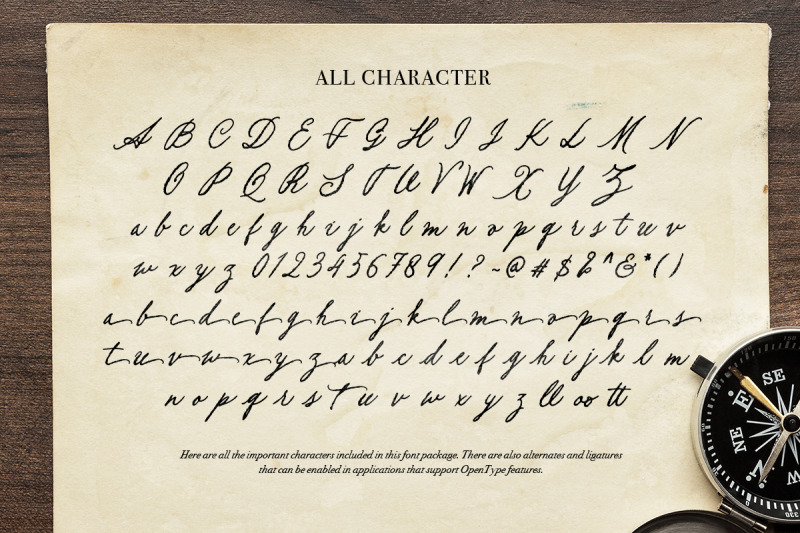 ALL CHARACTER
A B C D E F G H I J K L M N
O P Q R S T U V W X Y Z
a b c d e f g h i j k l m n o p q r s t u v
w x y z 0 1 2 3 4 5 6 7 8 9 ! ? ~ @ # $ % ^ & * ( )
a b c d e f g h i j k l m n o p q r s
t u v w x y z a b c d e f g h i j k l m
n o p q r s t u v w x y z ll oo tt
Here are all the important characters included in this font package. There are also alternates and ligatures
that can be enabled in applications that support OpenType features.
SE
E
NE
N
W